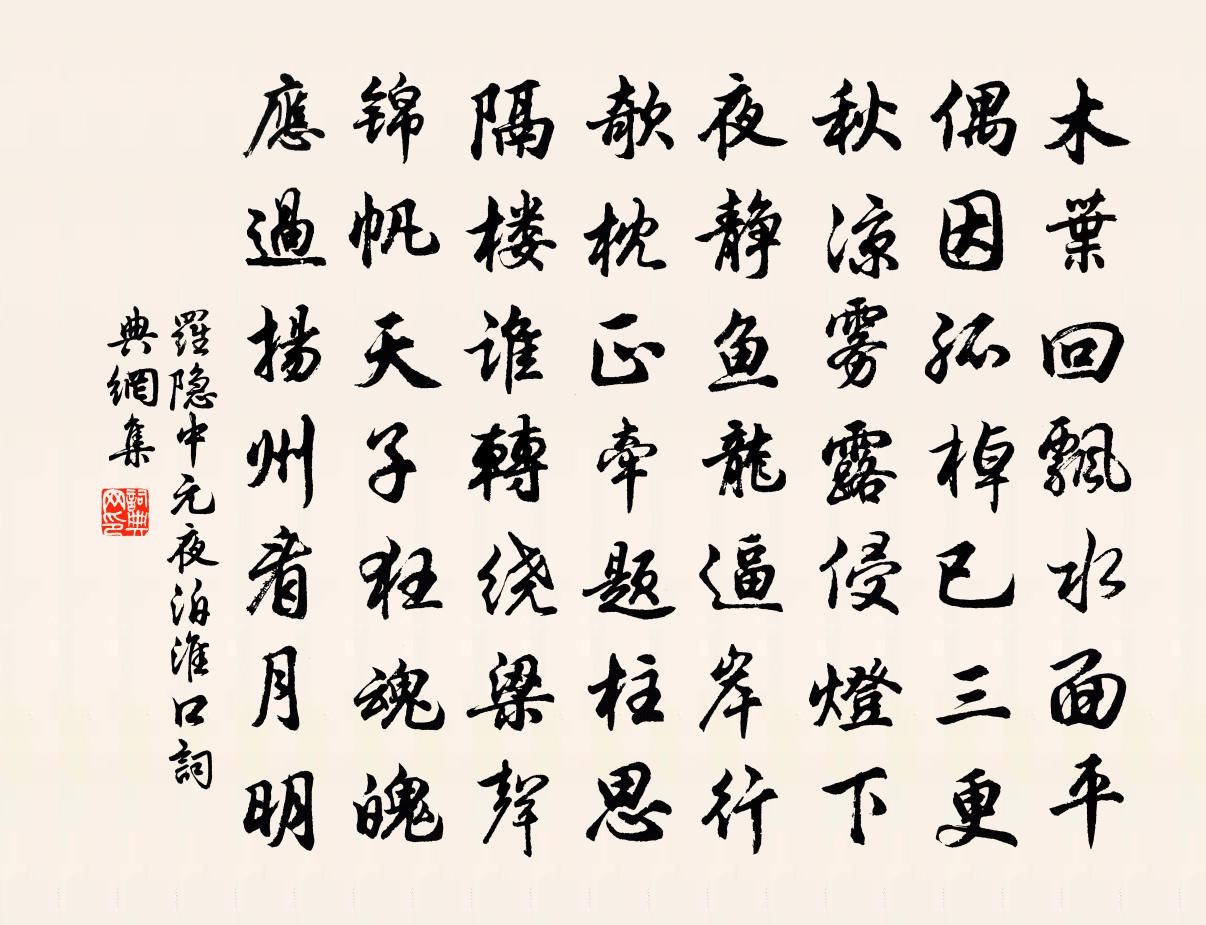 木葉回飄水面平
偶因孤棹已三更
秋涼雾露侵燈下
夜静鱼龍逼岸行
欹枕正牽题柱思
隔楼谁轉绕梁聲
锦帆天子狂魂魄
應過揚州看月明
羅隐中元夜泊淮口詞
典網集
詞典网印